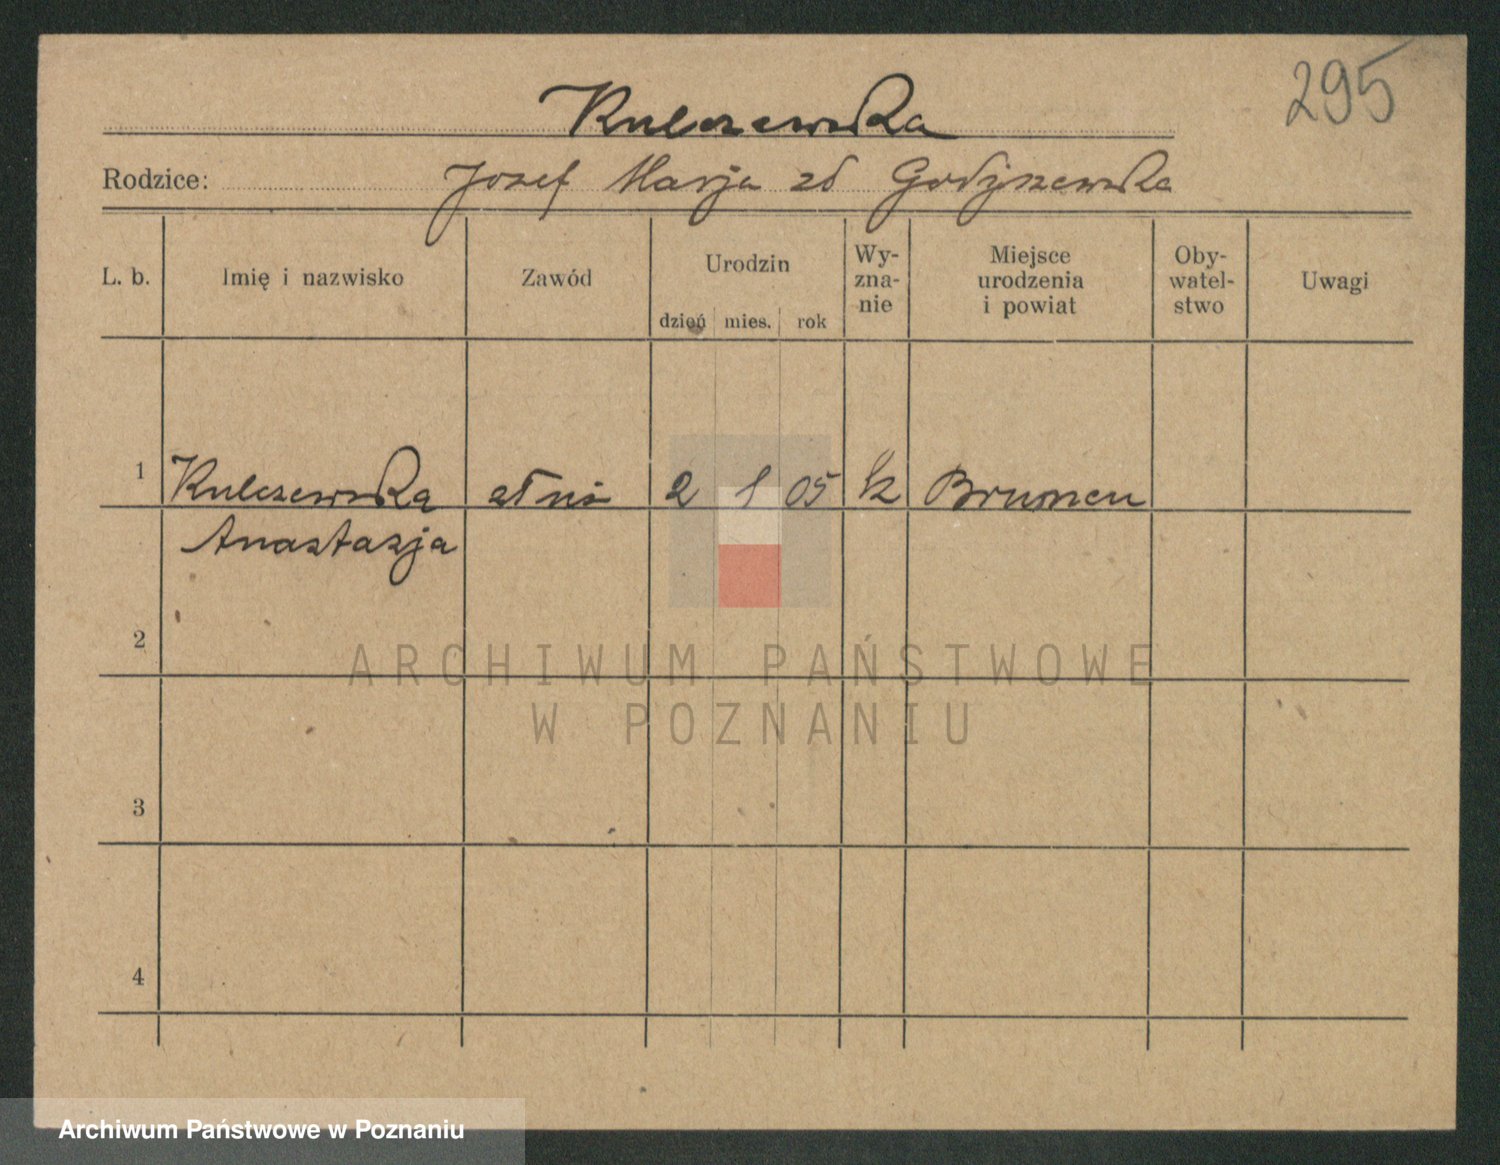 295
Kulczewska
Rodzice: Josef Marja zd Godziszewska
L. b. Imię i nazwisko Zawód Urodzin dzień mies. rok Wy-zna-nie Miejsce urodzenia i powiat Oby-watel-stwo Uwagi
1 Kulczewska 2 1 05 k
Anastazja
2
3
4
ARCHIWUM PAŃSTWOWE
W POZNANIU
Archiwum Państwowe w Poznaniu